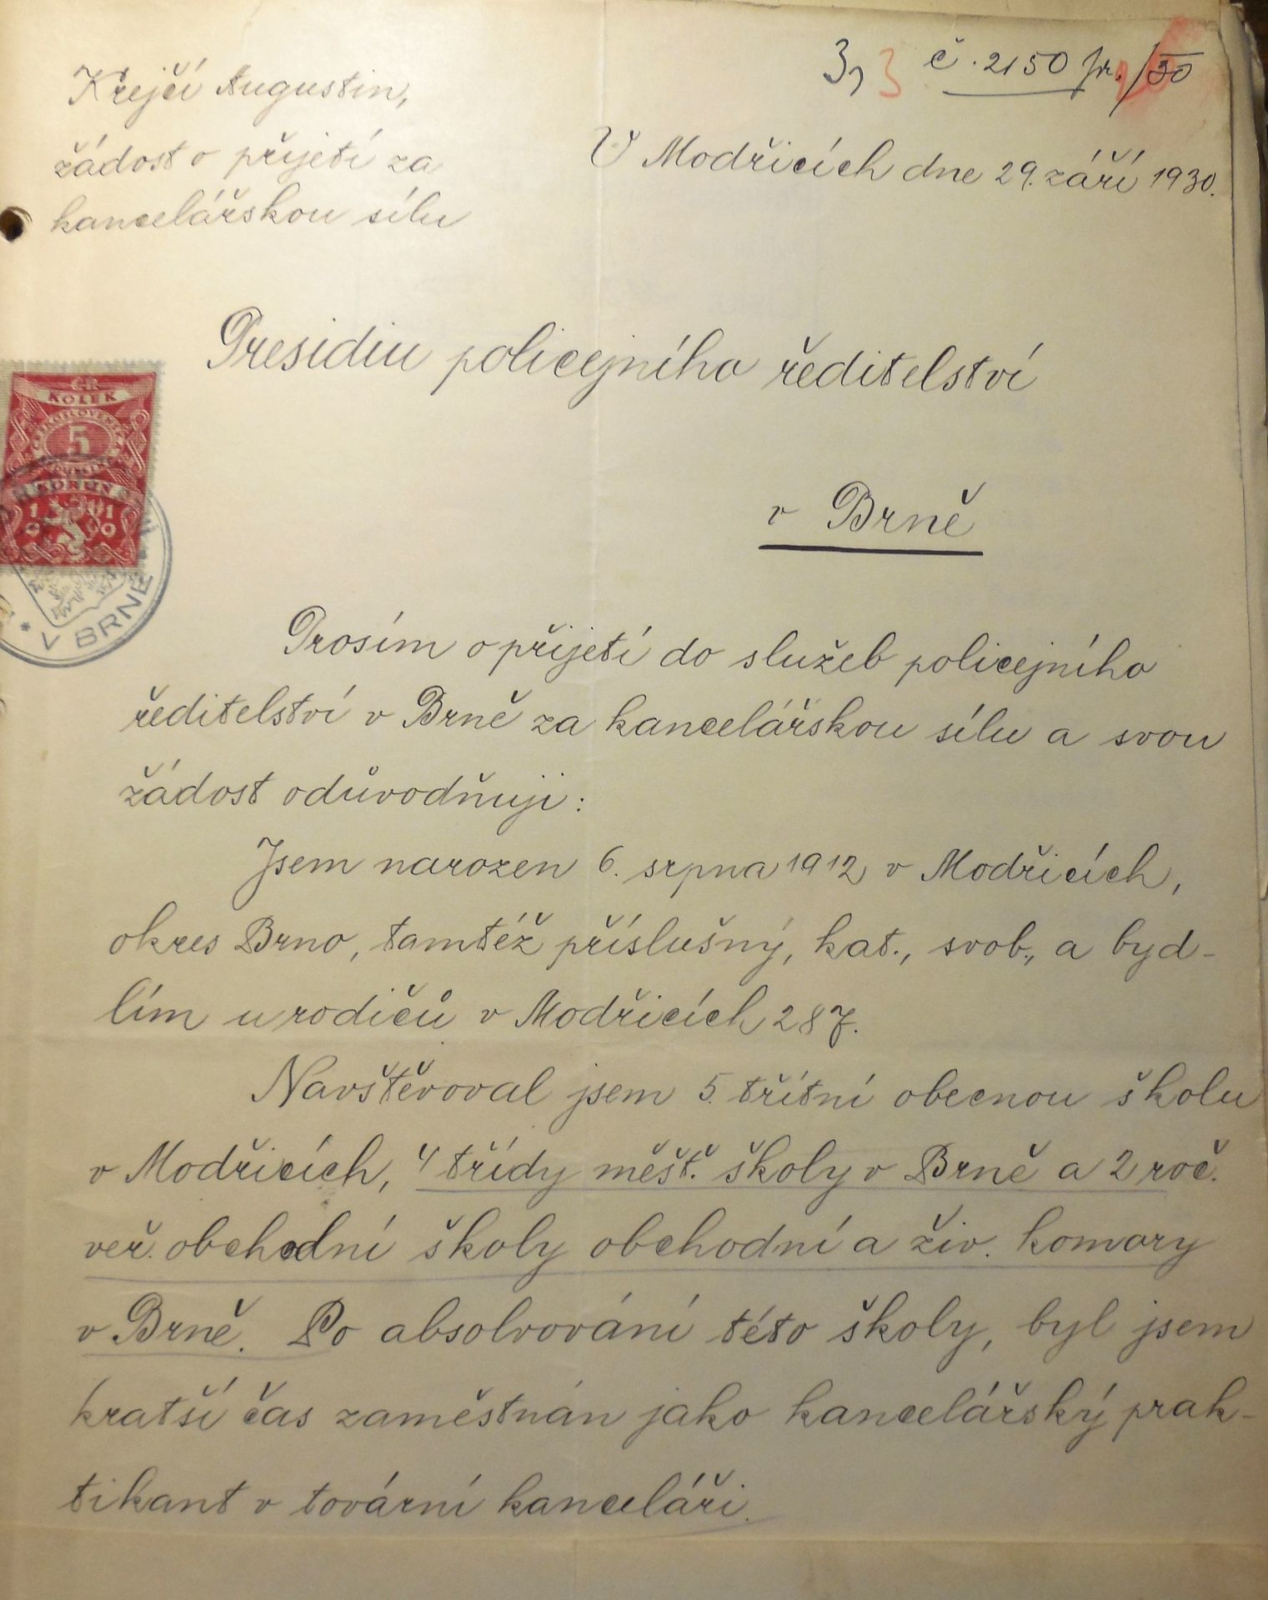 3, 3 č. 2150 /30
Krejčí Augustin,
žádost o přijetí za
kancelářskou sílu
V Modřicích dne 29. září 1930.
Presidiu policejního ředitelství
v Brně
ČR
KOLEK
5
KORUN
V BRNĚ
Prosím o přijetí do služeb policejního
ředitelství v Brně za kancelářskou sílu a svou
žádost odůvodňuji:
Jsem narozen 6. srpna 1912 v Modřicích,
okres Brno, tamtéž příslušný, kat., svob., a byd-
lím u rodičů v Modřicích 287.
Navštěvoval jsem 5. třítní obecnou školu
v Modřicích, 4 třídy měšť. školy v Brně a 2 roč.
veř. obchodní školy obchodní a živ. komory
v Brně. Po absolvování této školy, byl jsem
kratší čas zaměstnán jako kancelářský prak-
tikant v tovární kanceláři.